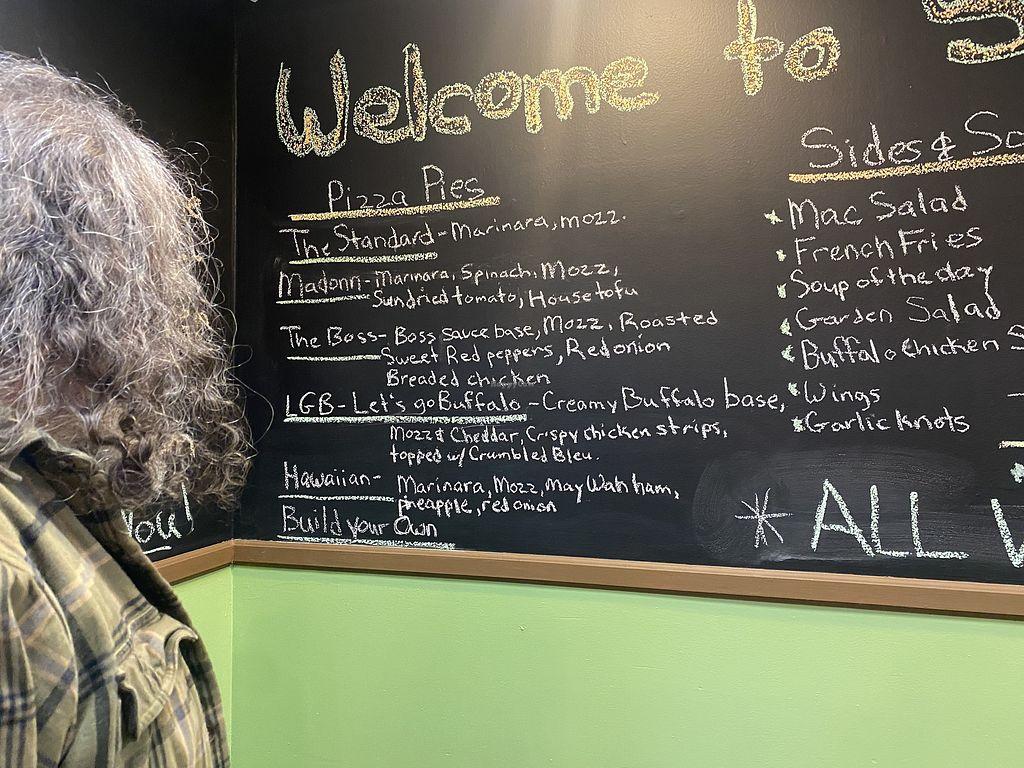 Welcome to S
Pizza Pies
The Standard - Marinara, mozz.
Madonn - Marinara, Spinach, Mozz,
Sundried tomato, House tofu
The Boss - Boss sauce base, Mozz, Roasted
Sweet Red peppers, Red onion
Breaded chicken
LGB - Let's go Buffalo - Creamy Buffalo base,
Mozz & Cheddar, Crispy chicken strips,
topped w/ Crumbled Bleu.
Hawaiian - Marinara, Mozz, May Wah ham,
pineapple, red onion
Build your Own
Sides & So
* Mac Salad
* French Fries
* Soup of the day
* Garden Salad
* Buffalo Chicken S
* Wings
* Garlic Knots
* ALL
you!